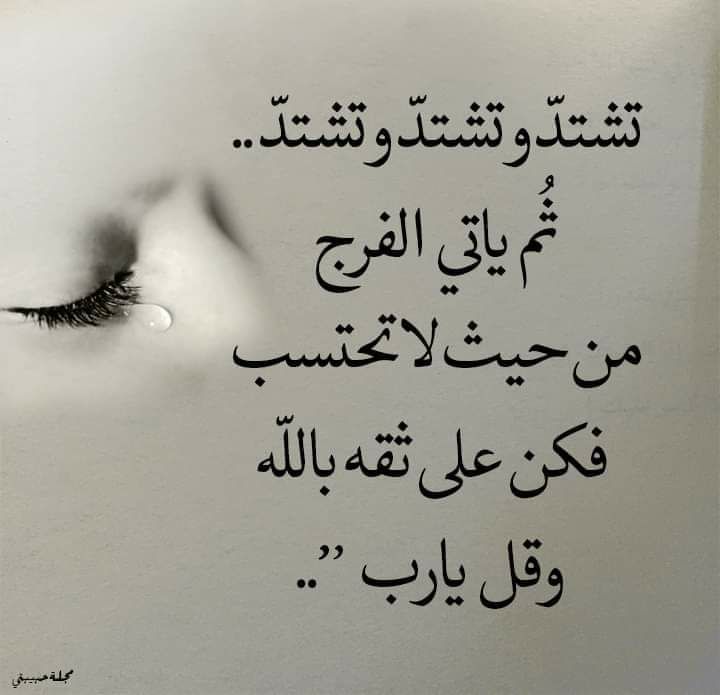 تشتدّ وتشتدّ وتشتدّ..
ثُم ياتي الفرج
من حيث لا تحتسب
فكن على ثقه باللّه
وقل يارب ”..
مجلة حبيبتي